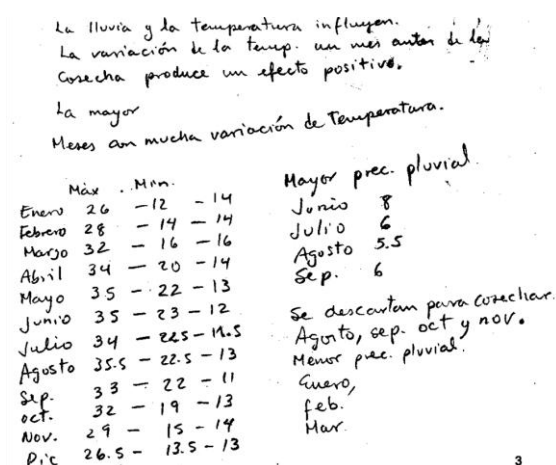 La lluvia y la temperatura influyen.
La variación de la temp. un mes antes de la
Cosecha produce un efecto positivo.
La mayor
Meses con mucha variación de temperatura.
Máx. Min.
Enero 26 - 12 - 14
Febrero 28 - 14 - 14
Marzo 32 - 16 - 16
Abril 34 - 20 - 14
Mayo 35 - 22 - 13
Junio 35 - 23 - 12
Julio 34 - 22.5 - 11.5
Agosto 35.5 - 22.5 - 13
Sep. 33 - 22 - 11
oct. 32 - 19 - 13
Nov. 29 - 15 - 14
Dic 26.5 - 13.5 - 13
Mayor prec. pluvial
Junio 8
Julio 6
Agosto 5.5
Sep. 6
Se descartan para cosechar.
Agosto, sep. oct y nov.
Menor prec. pluvial.
Enero,
feb.
Mar.
3